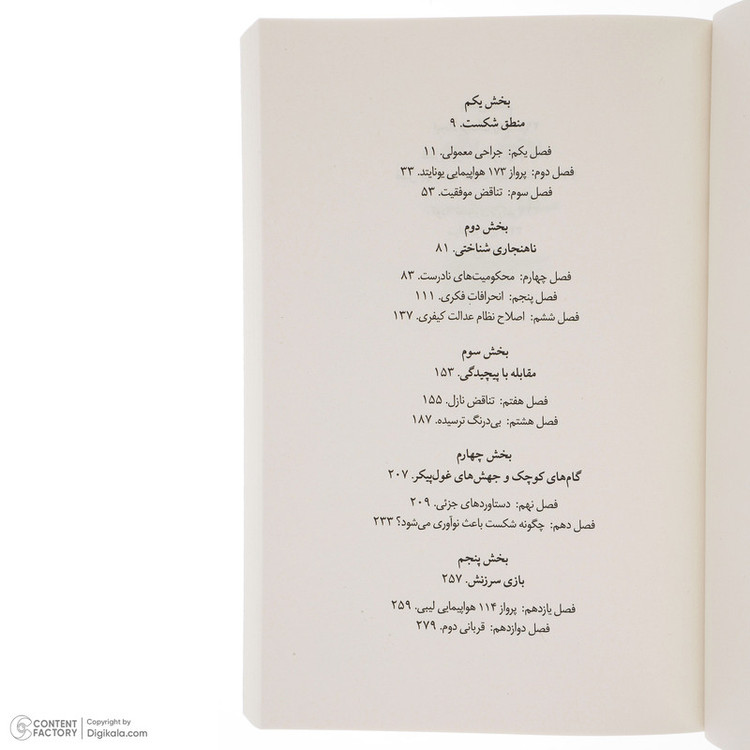 بخش یکم
منطق شکست. ۹
فصل یکم: جراحی معمولی. ۱۱
فصل دوم: پرواز ۱۷۳ هواپیمایی یونایتد. ۳۳
فصل سوم: تناقض موفقیت. ۵۳
بخش دوم
ناهنجاری شناختی. ۸۱
فصل چهارم: محکومیت‌های نادرست. ۸۳
فصل پنجم: انحرافاتِ فکری. ۱۱۱
فصل ششم: اصلاح نظام عدالت کیفری. ۱۳۷
بخش سوم
مقابله با پیچیدگی. ۱۵۳
فصل هفتم: تناقض نازل. ۱۵۵
فصل هشتم: بی‌درنگ ترسیده. ۱۸۷
بخش چهارم
گام‌های کوچک و جهش‌های غول‌پیکر. ۲۰۷
فصل نهم: دستاوردهای جزئی. ۲۰۹
فصل دهم: چگونه شکست باعث نوآوری می‌شود؟ ۲۳۳
بخش پنجم
بازی سرزنش. ۲۵۷
فصل یازدهم: پرواز ۱۱۴ هواپیمایی لیبی. ۲۵۹
فصل دوازدهم: قربانی دوم. ۲۷۹
CONTENT FACTORY
Copyright by
Digikala.com